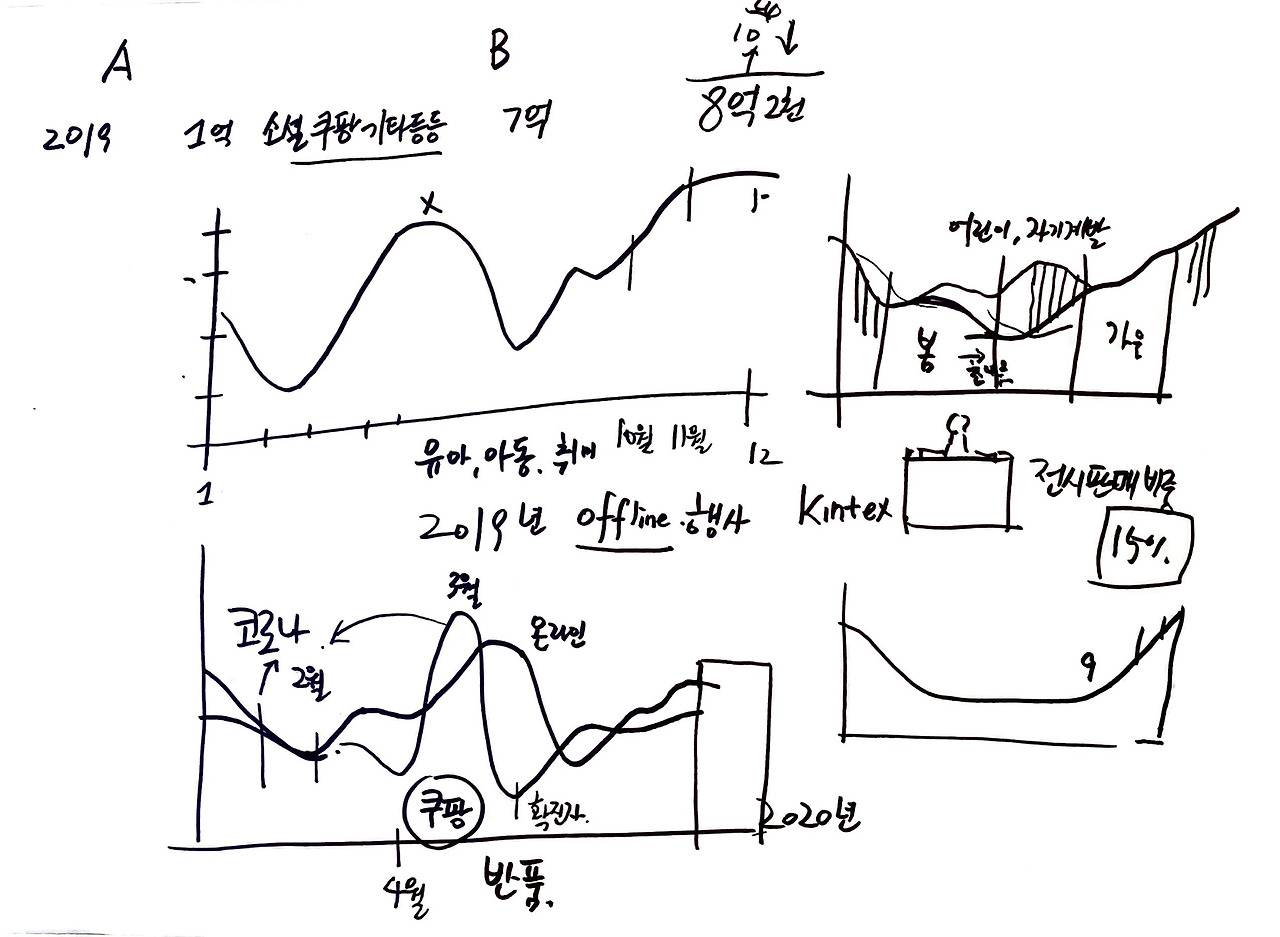 A
B
10
2019 1억 소셜 쿠팡 기타등등 7억
8억 2천
x
어린이, 자기계발
봄
가을
1
12
유아, 아동, 취미 10월 11월
2019년 offline 행사
Kintex
전시판매 비중
15%
코로나
2월
3월
온라인
9
쿠팡
확진자.
2020년
4월
반품.